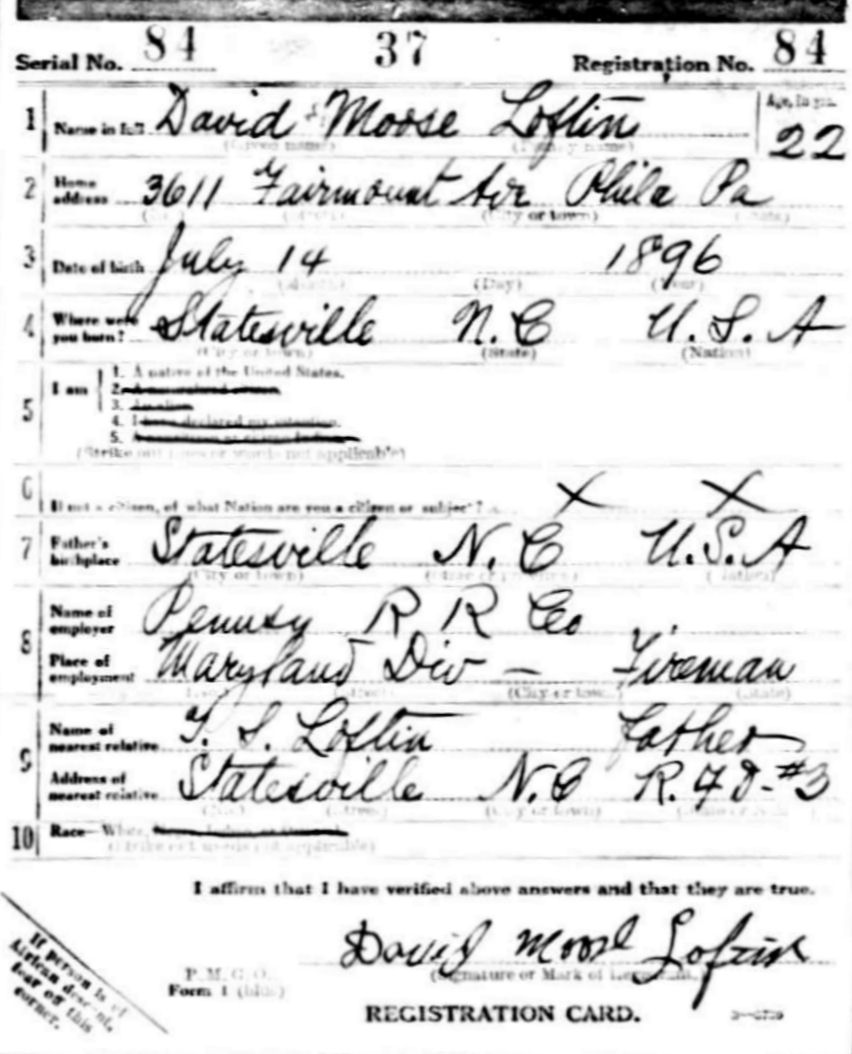 Serial No. 84 37 Registration No. 84
1 Name in full David Moose Loftin Age, in yrs. 22
(Given name) (Family name)
2 Home address 3611 Fairmount Ave Phila Pa
(No.) (Street) (City or town) (State)
3 Date of birth July 14 1896
(Month) (Day) (Year)
4 Where were you born? Statesville N. C U. S. A
(City or town) (State) (Nation)
5 I am
1. A native of the United States.
2. A naturalized citizen.
3. An alien.
4. I have declared my intention.
5.
(Strike out lines or words not applicable)
6 If not a citizen, of what Nation are you a citizen or subject? X X
7 Father's birthplace Statesville N. C U. S. A
(City or town) (State or province) (Nation)
8 Name of employer Pennsy R R Co
Place of employment Maryland Div – Fireman
(No.) (Street) (City or town) (State)
9 Name of nearest relative T. S. Loftin father
Address of nearest relative Statesville N. C R. F D - #3
(No.) (Street) (City or town) (State or Nation)
10 Race— White,
(Strike out words not applicable)
I affirm that I have verified above answers and that they are true.
David Moose Loftin
(Signature or Mark of Registrant.)
P. M. G. O.
Form 1 (blue)
REGISTRATION CARD.
If person is of
African descent,
tear off this
corner.